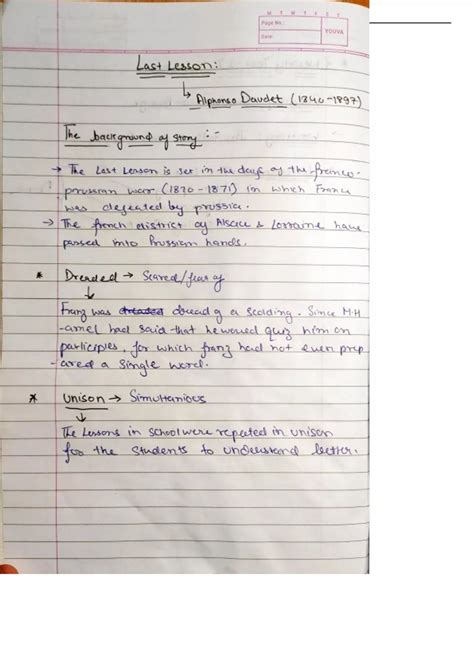 M T W T F S S
Page No.:
YOUVA
Date:
Last Lesson:
↳ Alphonso Daudet (1840-1897)
The background of story :-
→ The Last Lesson is set in the days of the franco-
prussian war (1870-1871) in which France
was defeated by prussia.
→ The french district of Alsace & Lorraine have
passed into Prussian hands.
* Dreaded → Scared/fear of
↓
Franz was dreaded dread of a scolding. Since M.H
-amel had said that he would quiz him on
participles, for which franz had not even prep
-ared a single word.
* Unison → Simultanious
↓
The Lessons in school were repeated in unison
for the students to understand better.